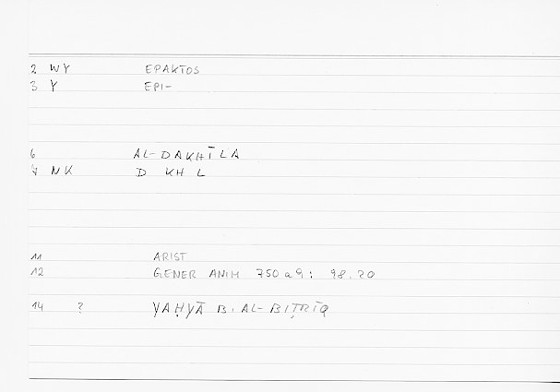 2 WY EPAKTOS
3 Y EPI-
6 AL-DAKHĪLA
7 NK D KH L
11 ARIST
12 GENER ANIM 750 a 9 : 98.20
14 ? YAḤYĀ B. AL-BIṬRĪQ